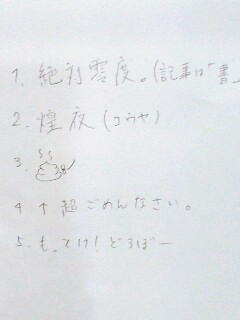 1. 絶対零度。(記事は「書
2. 煌夜(コウヤ)
3.
4 ↑ 超ごめんなさい。
5. もってけ!どろぼー